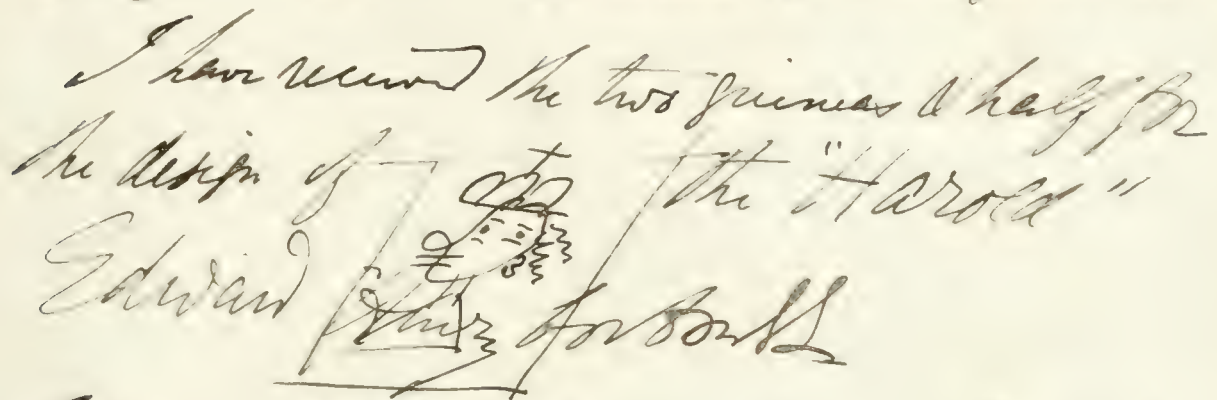 I have received the two guineas & half for
the design of the "Harold"
Edward